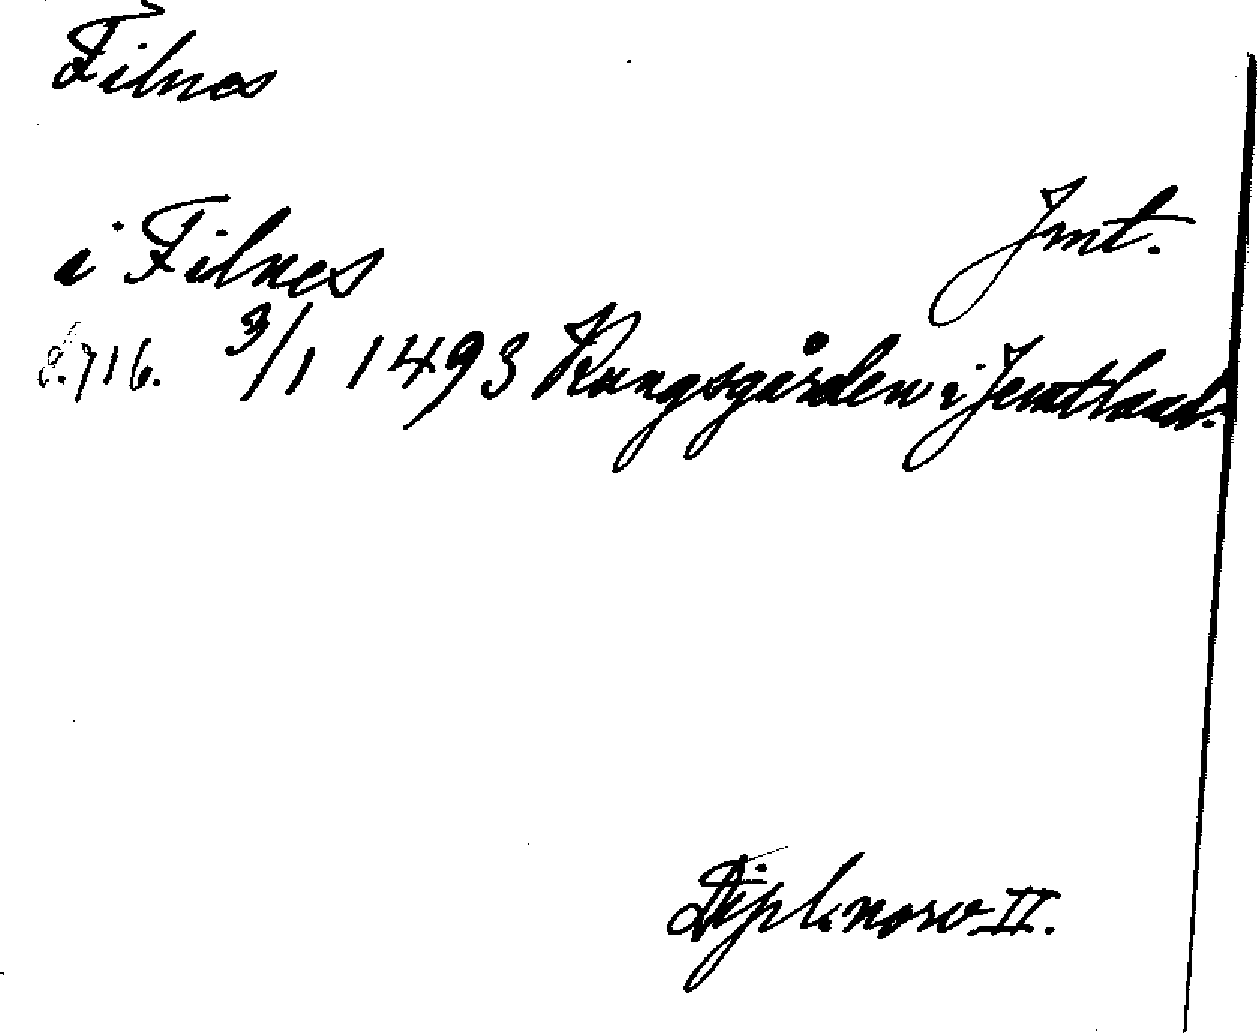 Filnes
Jmt.
i Filnes
s. 716. 3/1 1493 Kungsgården i Jemtland.
Dipl. norv II.